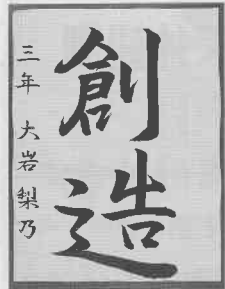 創造
三年 大岩梨乃